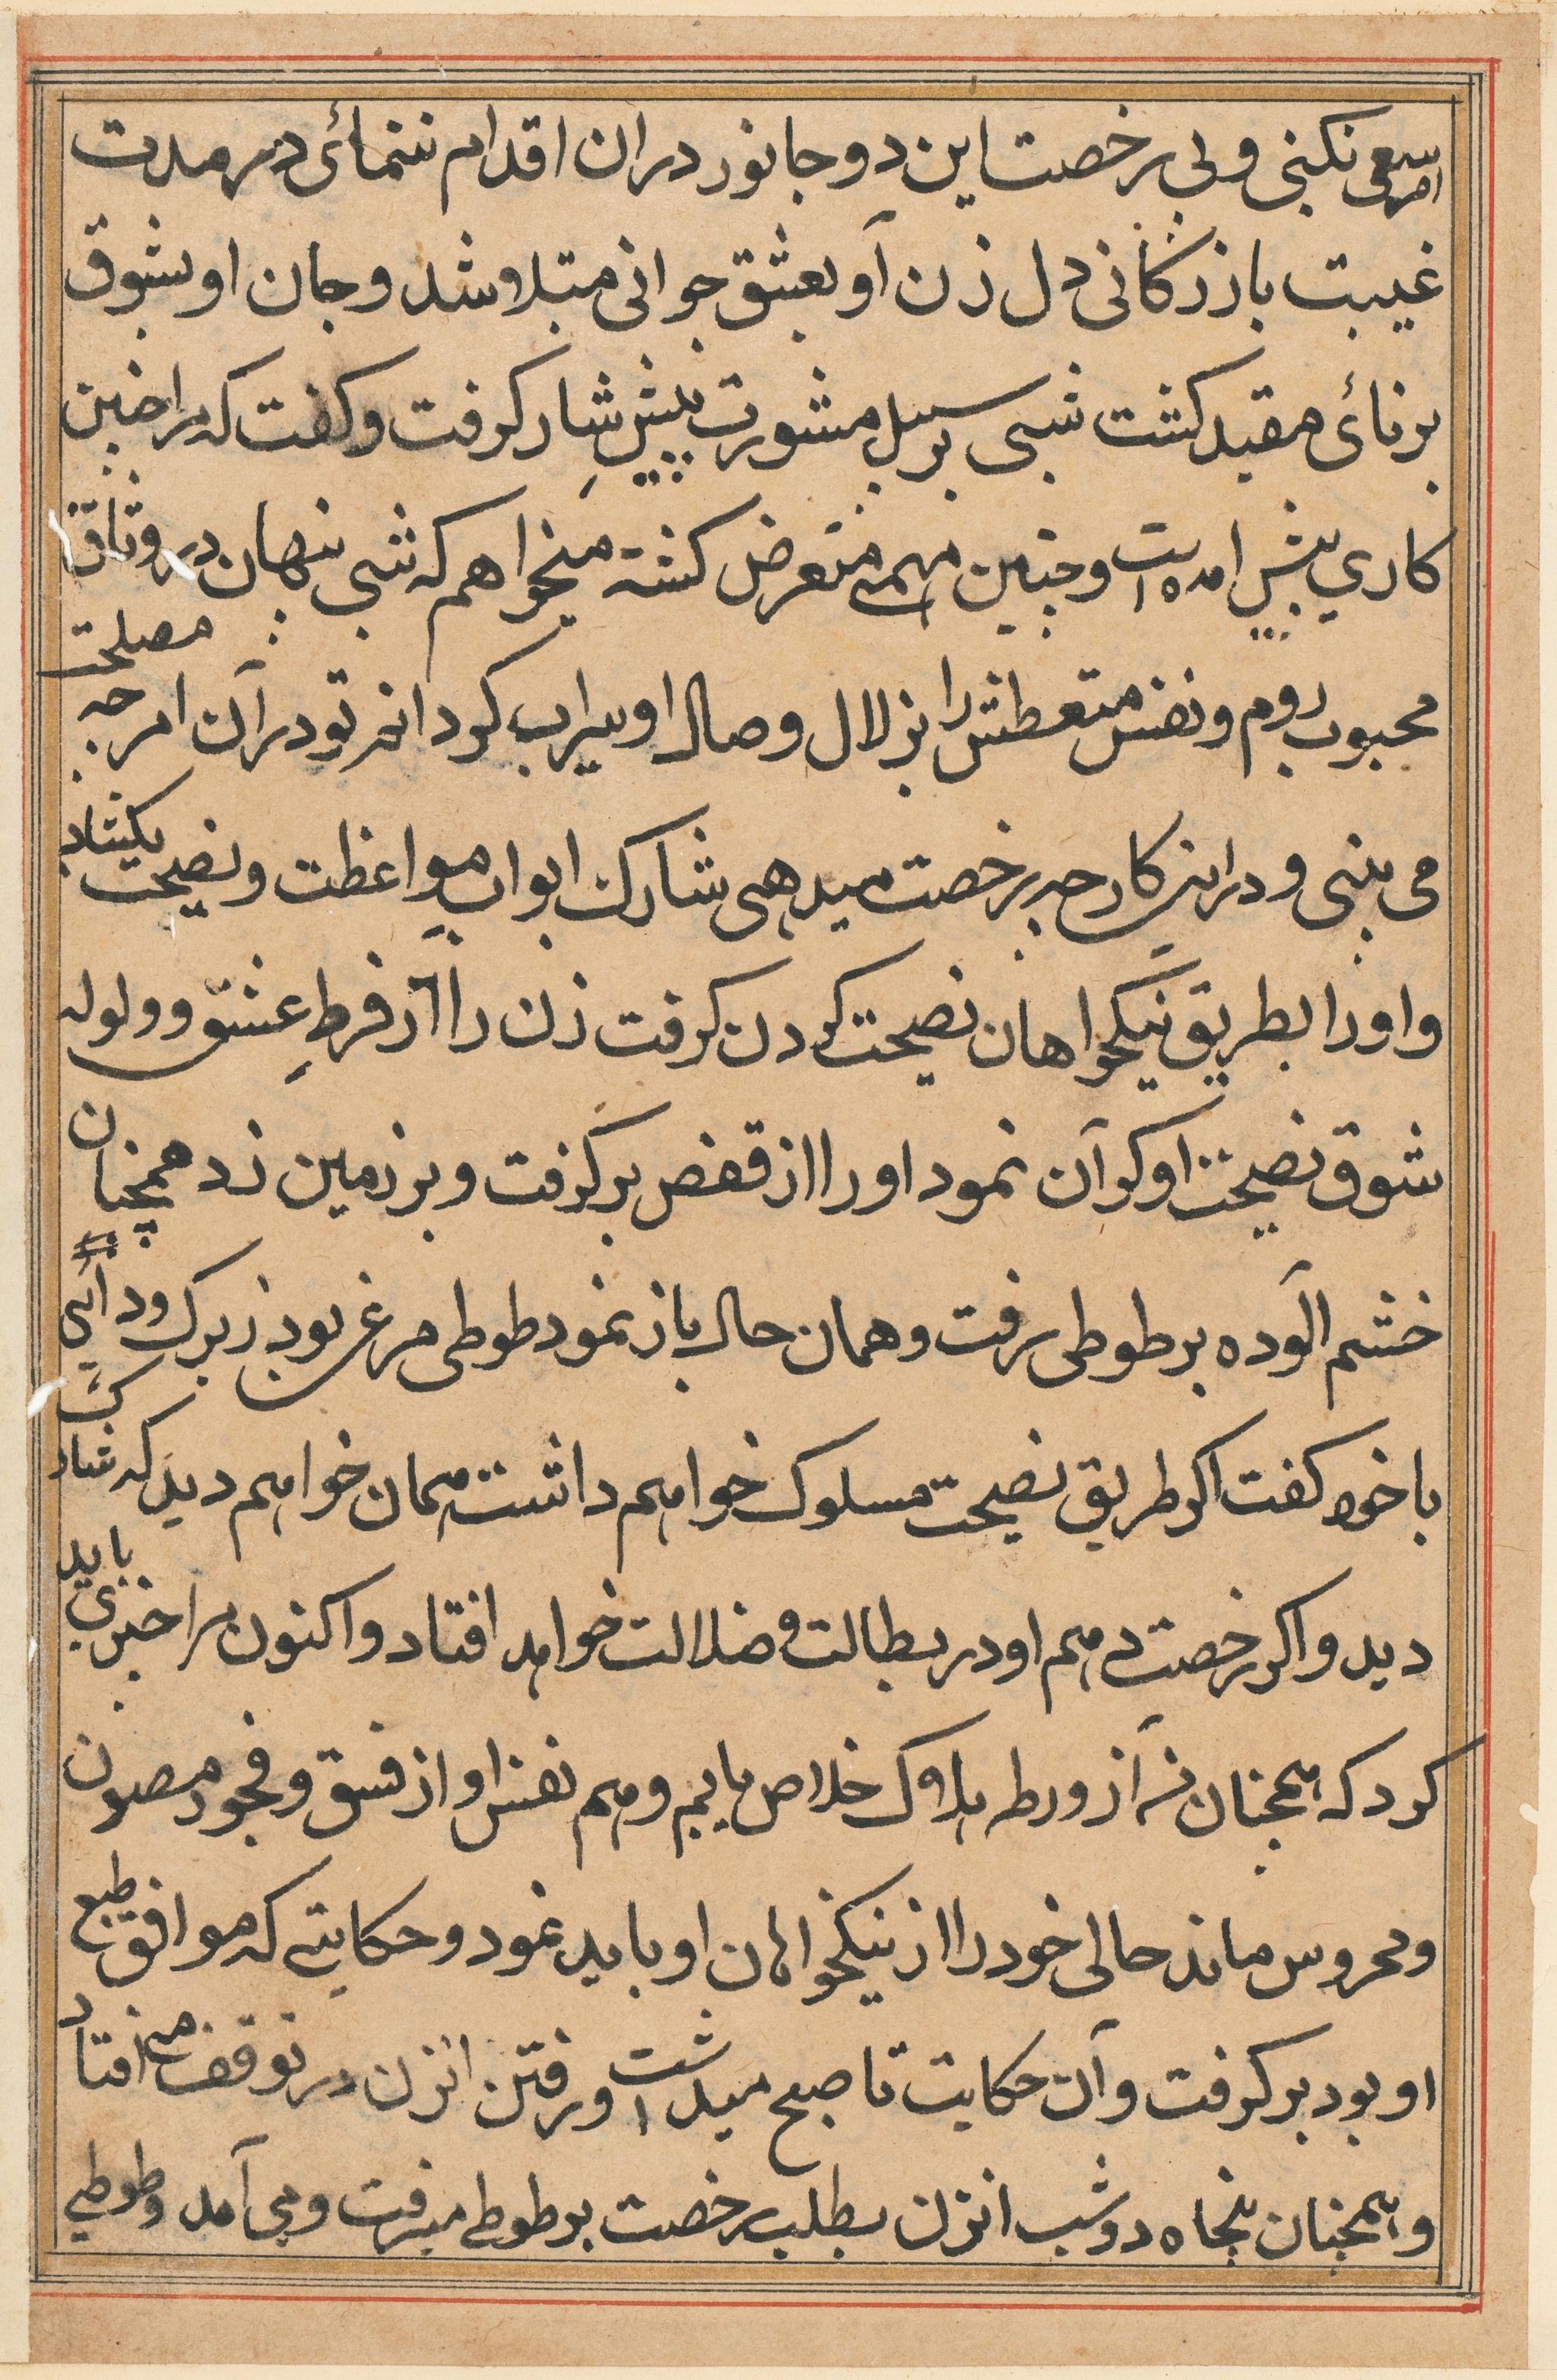 امر سعی نکنی و بی رخصت این دو جانور دران اقدام ننمائی در مدت
غیبت بازرکانی دل زن او بعشق جوانی مبتلا شد و جان او بشوق
برنائی مقید کشت شبی بر سبیل مشورت پیش شارک رفت و کفت که مرا چنین
کاری پیش امده است و چنین مهمی متعرض کشته میخواهم که شبی پنهان در وثاق
محبوب روم و نفس متعطش را بزلال وصال او سیراب کردانم تو در آن امر چه مصلحت
می بینی و دراین کار چه رخصت میدهی شارک ابواب مواعظت و نصیحت بکشاد
و او را بطریق نیکخواهان نصیحت کردن کرفت زن را از فرطِ عشق و ولوله
شوق نصیحت او کران نمود او را از قفص بر کرفت و بر زمین زد همچنان
خشم الوده بر طوطی رفت و همان حال باز نمود طوطی مرغی بود زیرک و دانی
با خود کفت اکر طریق نصیحت مسلوک خواهم داشت همان خواهم دید که شارک
دید و اکر رخصت دهم او در بطالت و ضلالت خواهد افتاد و اکنون مرا چیزی باید
کرد که همچنان نه از ورطه هلاک خلاص یابم و هم نفس او از فسق و فجور مصون
و محروس ماند حالی خود را از نیکخواهان او باید نمود و حکایتی که موافق طبع
او بود بر کرفت و آن حکایت تا صبح میداشت و رفتن انزن در توقف می افتاد
و همچنان پنجاه دو شب انزن بطلب رخصت بر طوطی میرفت و می آمد و طوطی